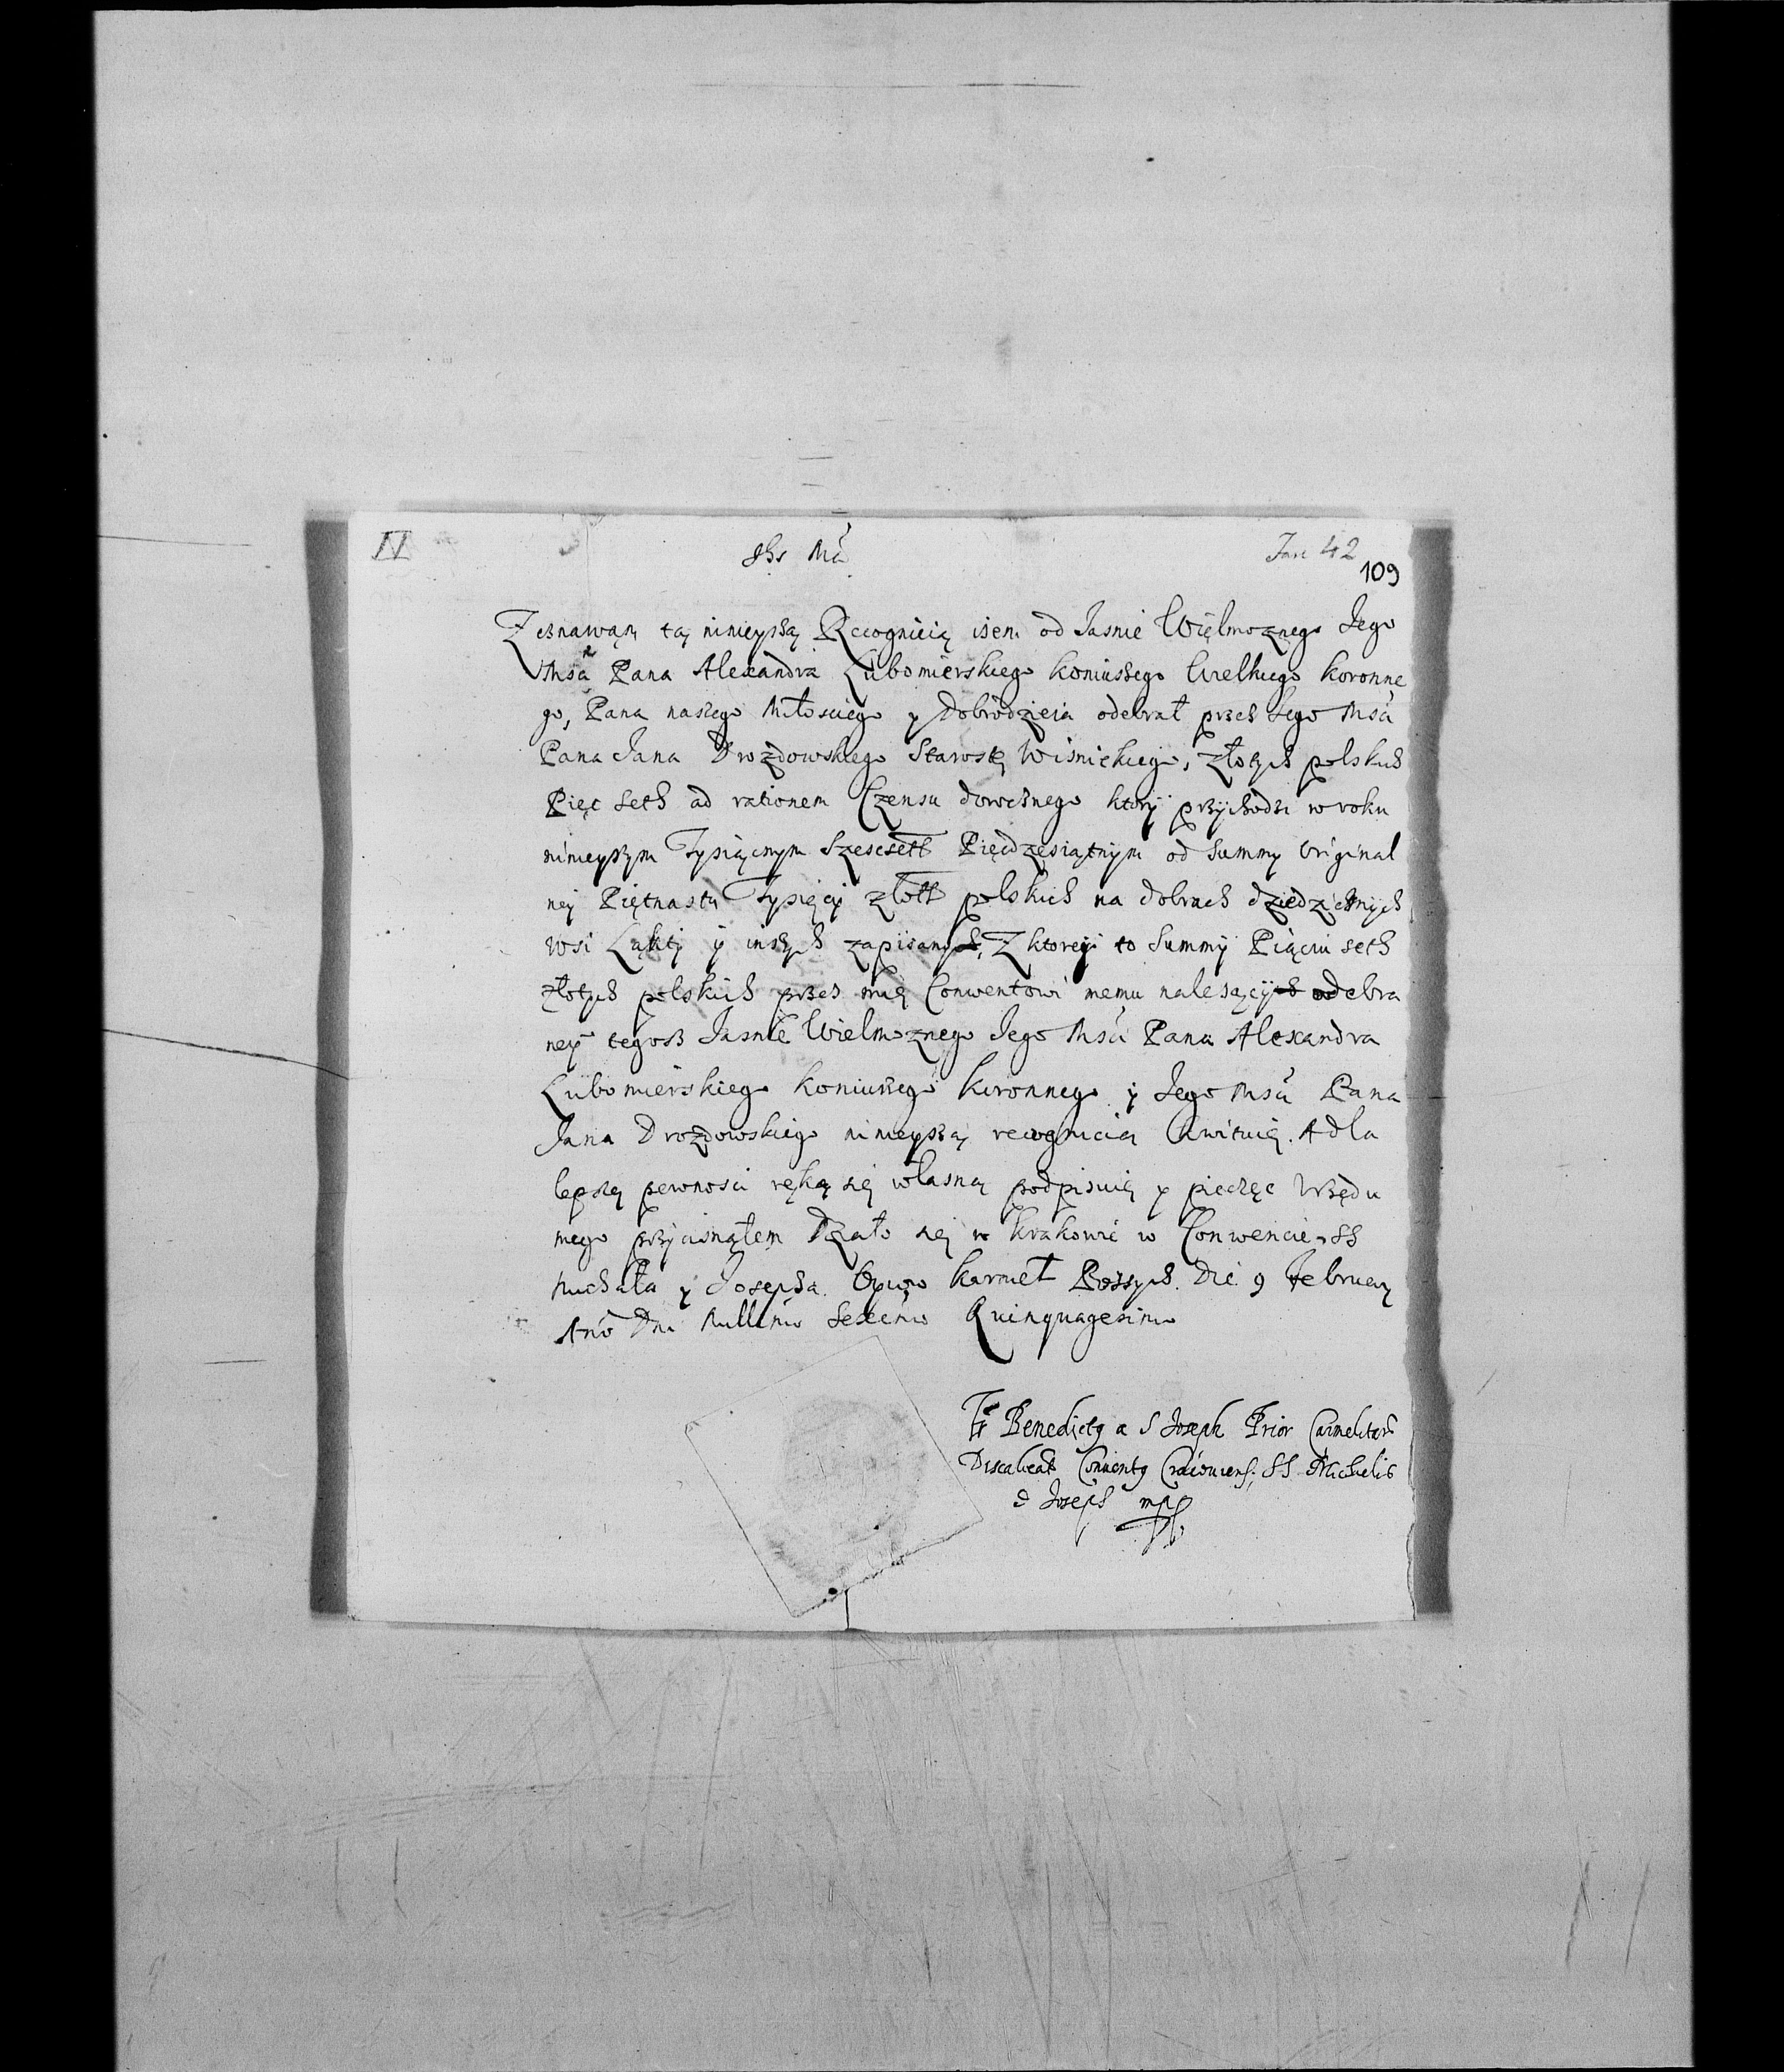 IV
Jhs Má
Fasc 42
109
Zeznawąm tą ninieyszą Recognicią isem od Jasnie Wielmoznego Jego
Msci Pana Alexandra Lubomierskiego Koniuszego Wielkiego Koronne
go, Pana naszego Miłosciego y Dobrodzieia odebrał przes Jego Msci
Pana Jana Drozdowskiego Starostę Wisnickiego, złotych polskich
Pięc seth ad rationem Czensu dorocznego ktory przychodzi w roku
ninieyszym Tysiącnym Szescseth Pięcdzęsiątnym od Summy Original
ney Piętnastu Tysięcy złott polskich na dobrach dziedzicznych
wsi Ląkty y inszych zapisanych, Z ktoreyi to Summy Piąciu seth
złotych polskich przes mię Conwentowi memu nalezących odebra
ney tegosz Jasnie Wielmoznego Jego Msci Pana Alexandra
Lubomierskiego Koniuszego Koronnego y Jego Msci Pana
Jana Drozdowskiego ninieyszą recognicią Kwituię. A dla
lepszey pewnosci ręką się własną podpisuię y pieczęc Urzędu
mego przycisnąłem Dzało się w Krakowie w Conwencie SS
Michała y Josepha Oycow Karmel Bossych. Die 9 Februarij
Ano Dni Millimo Sexcenmo Quinquagesimo
Fr Benedictq a S Joseph Prior Carmelitar
Discalceat Conventq Cracoviens. SS Michaelis
et Joseph mpp